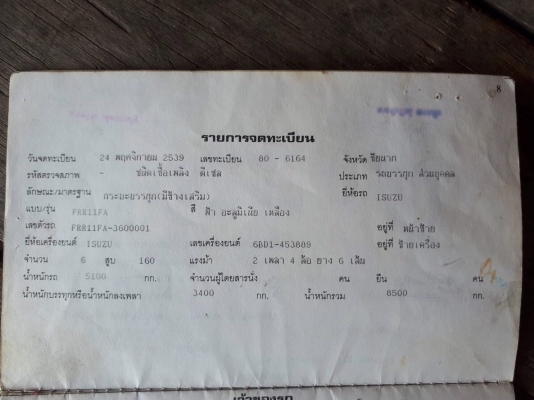 8
รายการจดทะเบียน
วันจดทะเบียน 24 พฤศจิกายน 2539 เลขทะเบียน 80 - 6164 จังหวัด ชัยนาท
รหัสตรวจสภาพ - ชนิดเชื้อเพลิง ดีเซล ประเภท รถบรรทุก ส่วนบุคคล
ลักษณะ/มาตรฐาน กระบะบรรทุก(มีข้างเสริม) ยี่ห้อรถ ISUZU
แบบ/รุ่น FRR11FA สี ฟ้า อะลูมิเนียม เหลือง
เลขตัวรถ FRR11FA-3600001 อยู่ที่ หน้าซ้าย
ยี่ห้อเครื่องยนต์ ISUZU เลขเครื่องยนต์ 6BD1-453809 อยู่ที่ ซ้ายเครื่อง
จำนวน 6 สูบ 160 แรงม้า 2 เพลา 4 ล้อ ยาง 6 เส้น
น้ำหนักรถ 5100 กก. จำนวนผู้โดยสารนั่ง คน ยืน คน
น้ำหนักบรรทุกหรือน้ำหนักลงเพลา 3400 กก. น้ำหนักรวม 8500 กก.
เจ้าของรถ